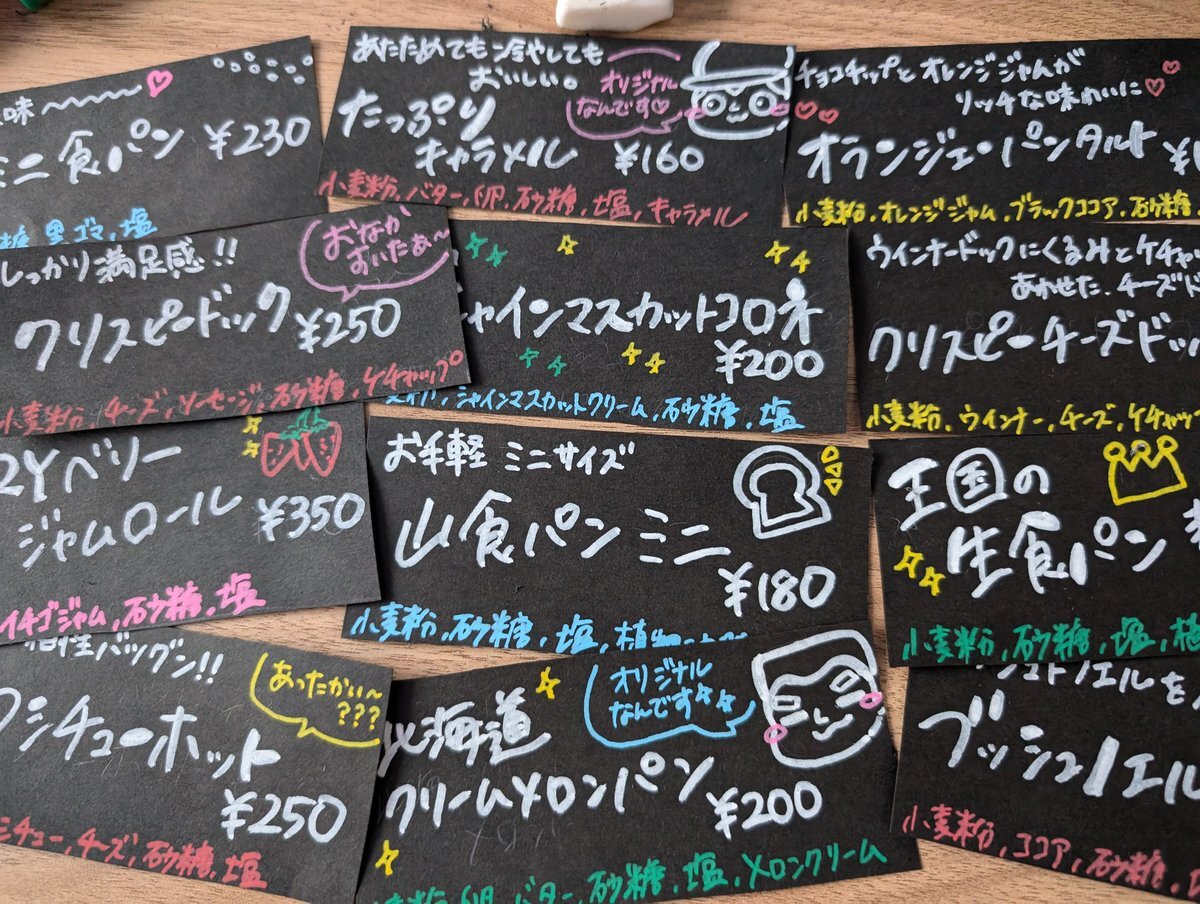 味〜〜〜♡
ミニ食パン ¥230
糖,黒ゴマ,塩
あたためても冷やしても
おいしい。
オリジナル
なんです♡
たっぷり
キャラメル ¥160
小麦粉,バター,卵,砂糖,塩,キャラメル
チョコチップとオレンジジャムが
リッチな味わいに♡
オランジェ・パンタルト
小麦粉,オレンジジャム,ブラックココア,砂糖
しっかり満足感!!
おなか
すいたぁ〜
クリスピードック ¥250
小麦粉,チーズ,ソーセージ,砂糖,ケチャップ
シャインマスカットコロネ
¥200
シャインマスカットクリーム,砂糖,塩
ウインナードックにくるみとケチャッ
あわせた.チーズド
クリスピーチーズドッ
小麦粉,ウインナー,チーズ,ケチャッ
2Yベリー
ジャムロール ¥350
イチゴジャム,砂糖,塩
お手軽 ミニサイズ
山食パン ミニ
¥180
小麦粉,砂糖,塩,植
王国の
生食パン
小麦粉,砂糖,塩,植
相性バツグン!!
あったかい〜
???
シチューホット
¥250
シチュー,チーズ,砂糖,塩
オリジナル
なんです
北海道
クリームメロンパン ¥200
小麦粉,卵,バター,砂糖,塩,メロンクリーム
ュドノエルを
ブッシュノエル
小麦粉,ココア,砂糖